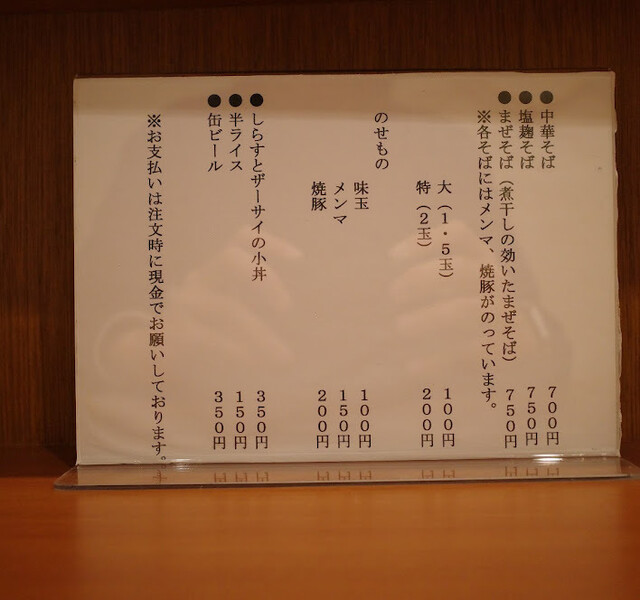 ●中華そば 700円
●塩麹そば 750円
●まぜそば（煮干しの効いたまぜそば） 750円
※各そばにはメンマ、焼豚がのっています。
大（1・5玉） 100円
特（2玉） 200円
のせもの
味玉 100円
メンマ 150円
焼豚 200円
●しらすとザーサイの小丼 350円
●半ライス 150円
●缶ビール 350円
※お支払いは注文時に現金でお願いしております。